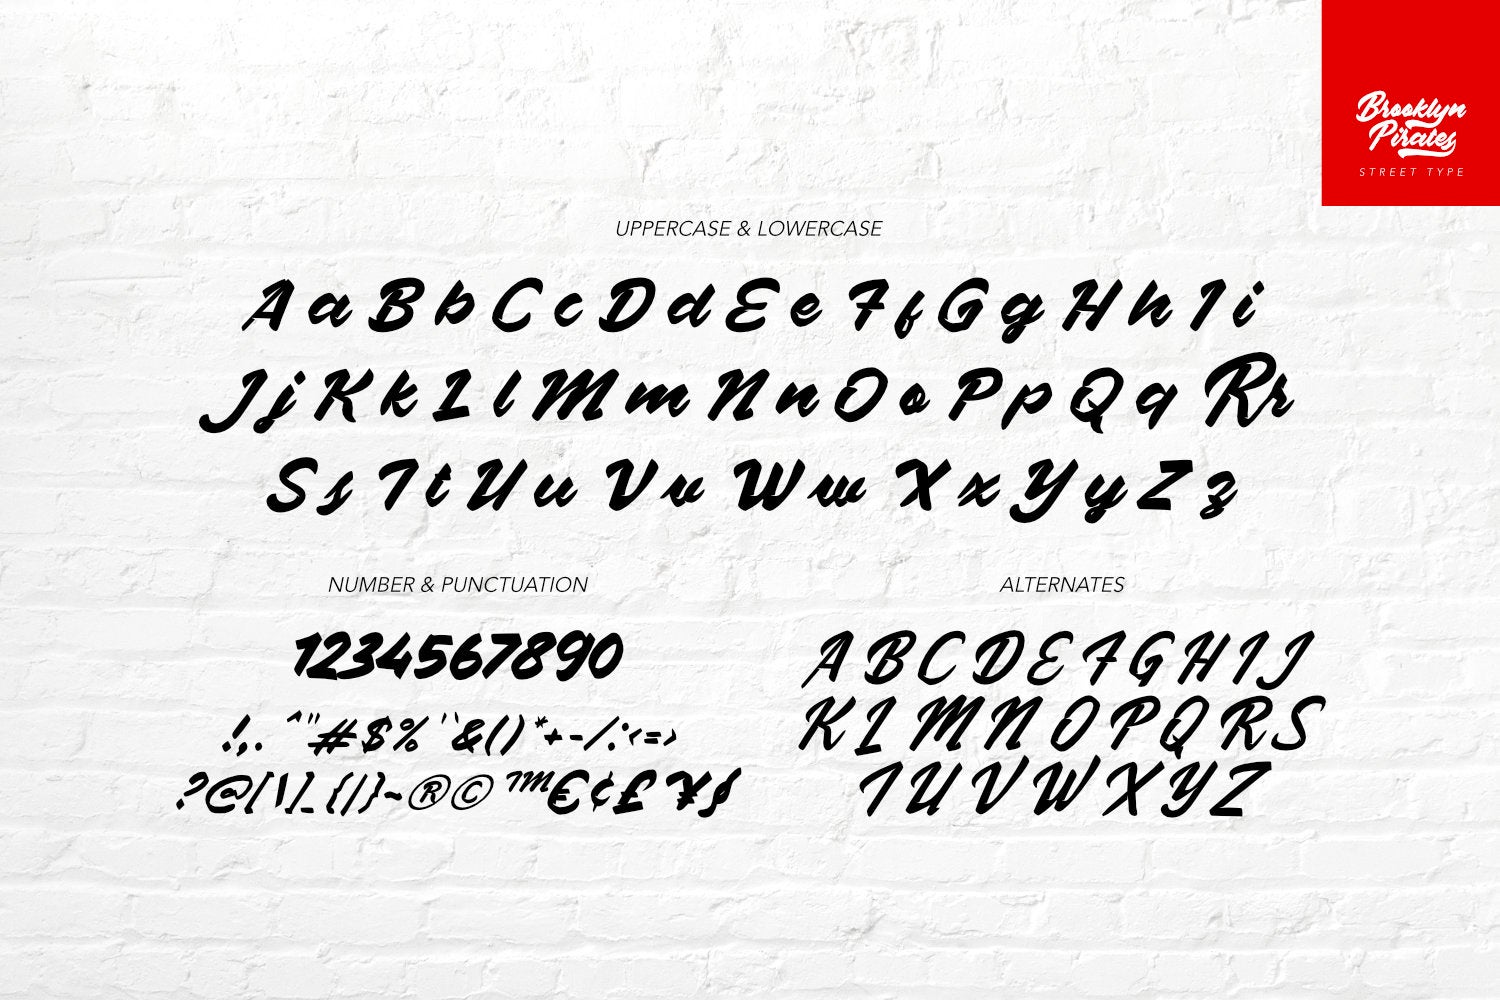 Brooklyn
Pirates
STREET TYPE
UPPERCASE & LOWERCASE
A a B b C c D d E e F f G g H h I i
J j K k L l M m N n O o P p Q q R r
S s T t U u V v W w X x Y y Z z
NUMBER & PUNCTUATION
1234567890
!,. ^"#$%'`&()*+-/:‹=›
?@[\]_{|}~®©™€¢£¥§
ALTERNATES
A B C D E F G H I J
K L M N O P Q R S
T U V W X Y Z